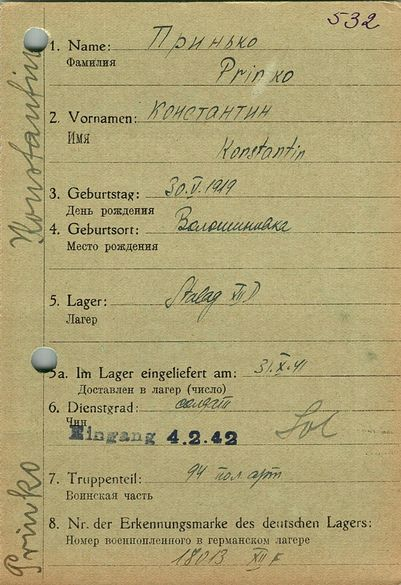 532
1. Name: Принько
Фамилия
Prinko
2. Vornamen: Константин
Имя
Konstantin
3. Geburtstag: 30.V.1919
День рождения
4. Geburtsort: Волошиновка
Место рождения
5. Lager: Stalag XII D
Лагер
5a. Im Lager eingeliefert am: 31.X.41
Доставлен в лагер (число)
6. Dienstgrad: солдат
Чин
Eingang 4.2.42
Sol
7. Truppenteil: 94 пол арт
Воинская часть
8. Nr. der Erkennungsmarke des deutschen Lagers:
Номер военнопленного в германском лагере
18013 XII F
Prinko Konstantin